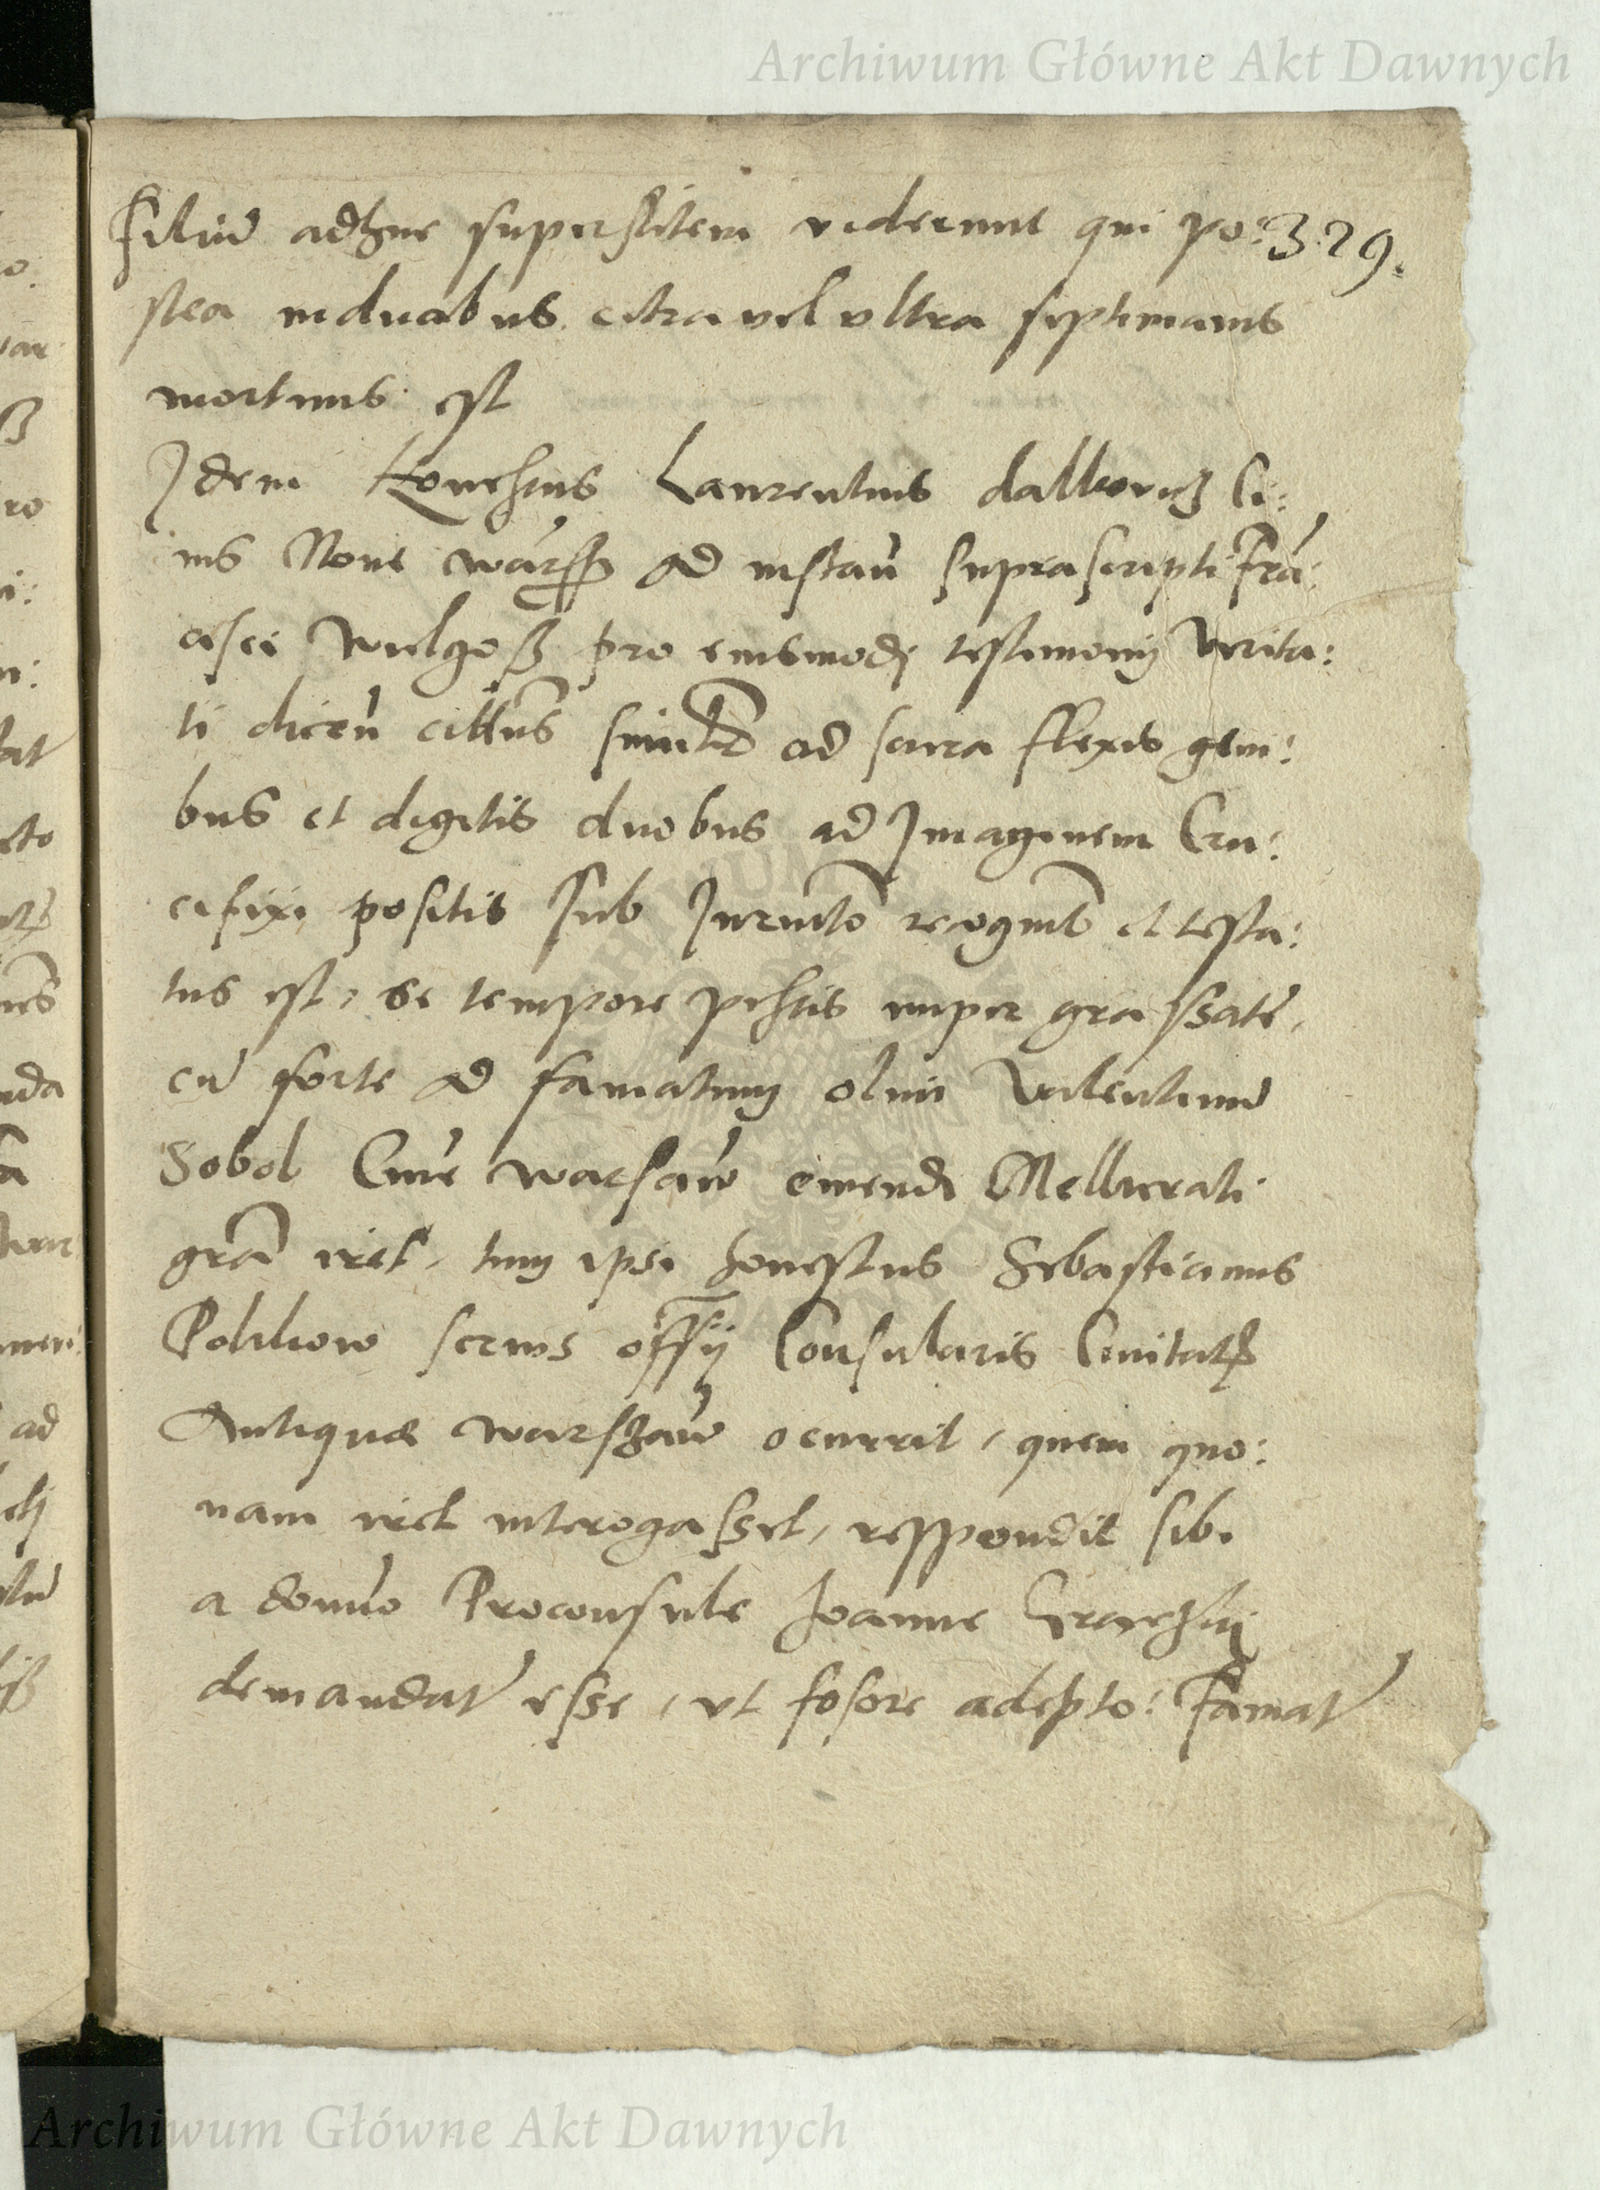 Archiwum Główne Akt Dawnych
filiū adhuc superstitem viderunt qui po: 329.
stea in duabus citra vel vltra septimanis
mortuus est
Idem honestus Laurentius Ci:
uis Noue warss ad instan suprascripti Frā:
cisci Wielgosz pro eiusmodj testimonij verita:
ti dicen cittus ad scura flexis geni:
bus et digitis duobus ad Imaginem Cru:
cifixi positis sub Iurmto recognit et testa:
tus est, se tempore pestis nuper grassate,
cū forte ad famatum olim Valentinū
Sobol Ciue warsaw emendi Mellicrati
grā iret, tum ipsi honestus Sebastianus
Polikow seruus offij Consularis Ciuitatis
Antiquae warszaw ocurrit, quem quo:
nam iret interogasset, respondit sibi
a domno Proconsule Joanne
demandat esse, vt fosore adepto: famat
Archiwum Główne Akt Dawnych